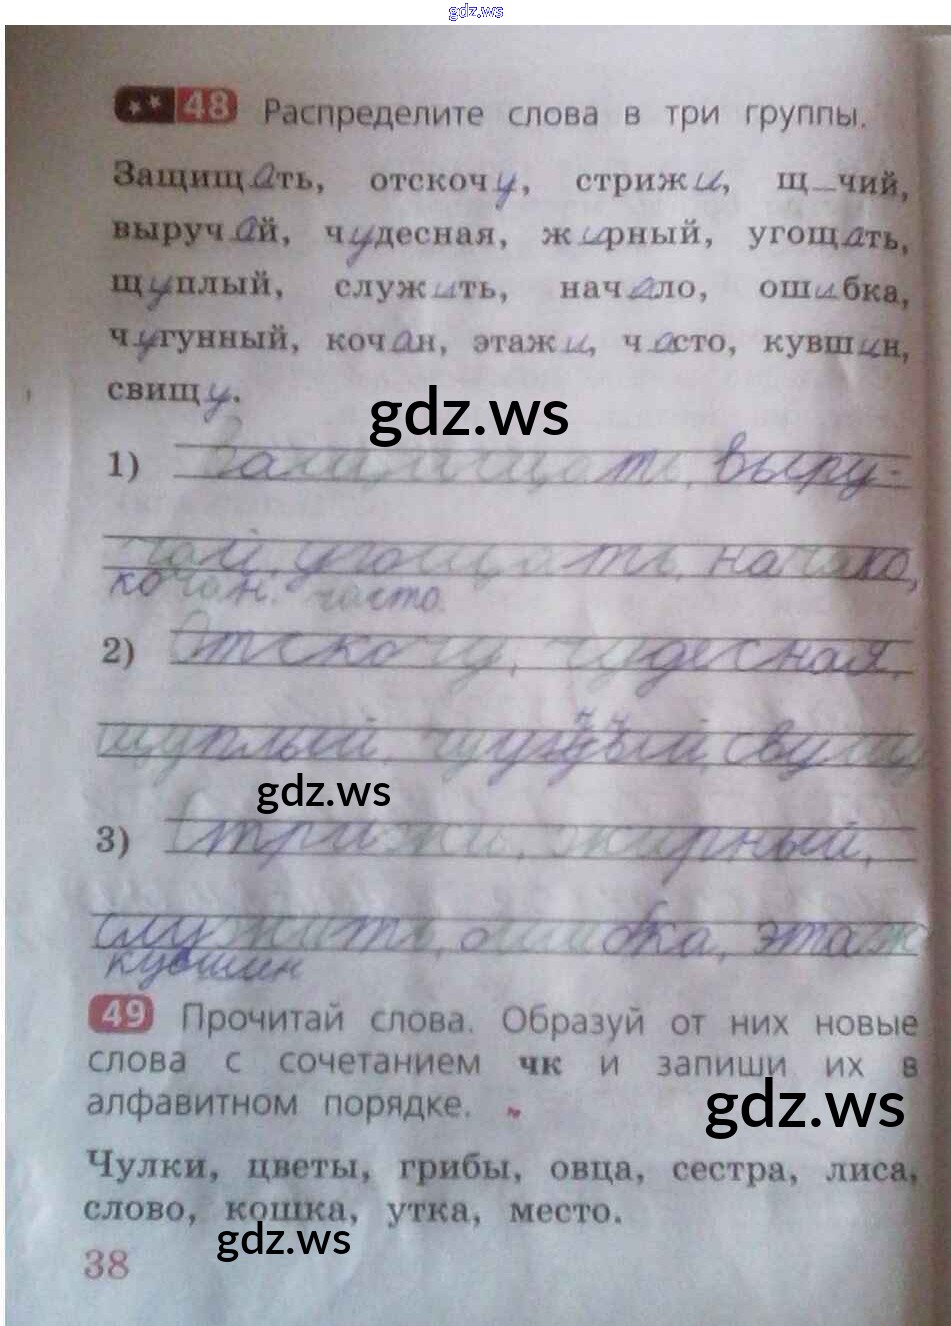 gdz.ws
48 Распределите слова в три группы.
Защищать, отскочу, стрижи, щ_чий,
выручай, чудесная, жирный, угощать,
щуплый, служить, начало, ошибка,
чугунный, кочан, этажи, часто, кувшин,
свищу.
gdz.ws
1) Защищать, выру-
чай, угощать, начало,
кочан. часто.
2) Отскочу, чудесная,
щуплый,
gdz.ws
3) Стрижи, жирный,
служить, ошибка, этаж
кувшин
49 Прочитай слова. Образуй от них новые
слова с сочетанием чк и запиши их в
алфавитном порядке.
gdz.ws
Чулки, цветы, грибы, овца, сестра, лиса,
слово, кошка, утка, место.
gdz.ws
38